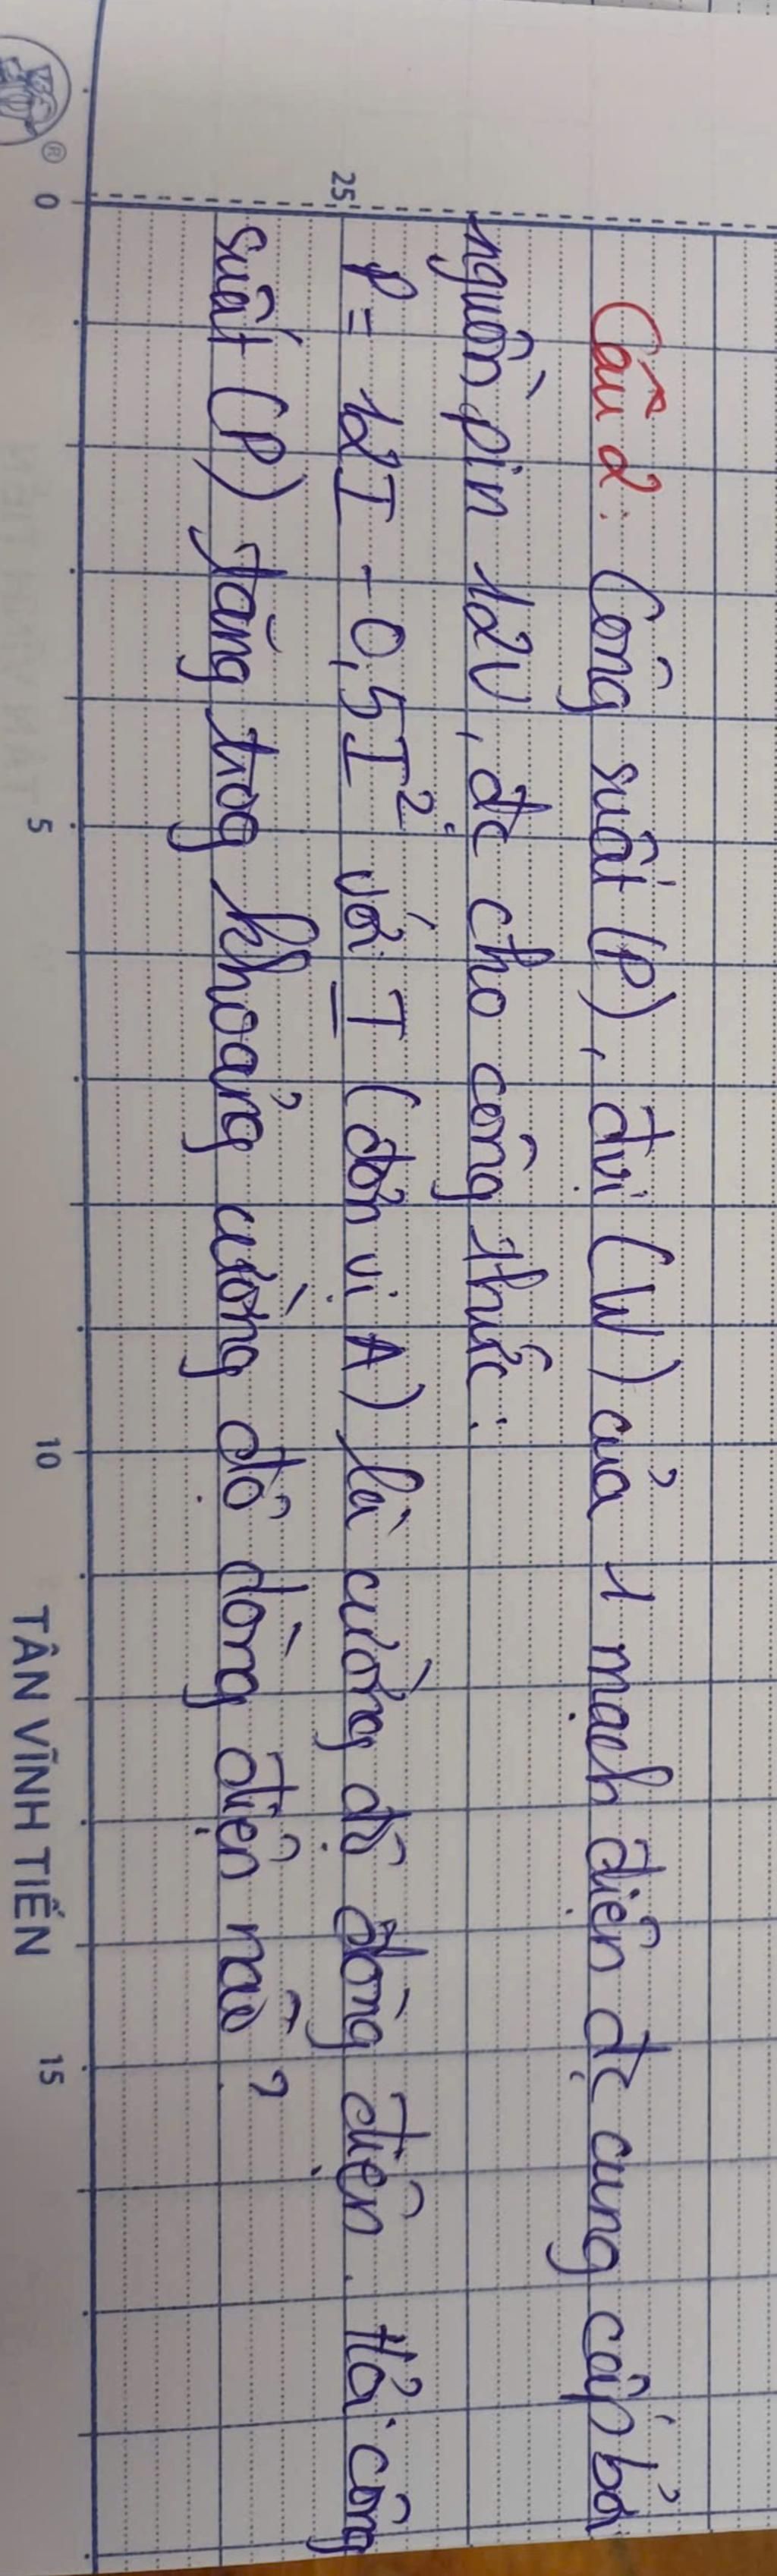 Câu 2: Công suất (P), đvi (W) của 1 mạch điện đc cung cấp bởi
nguồn pin 12V, đc cho công thức:
25
P = 12I - 0,5I² với I (đơn vị A) là cường độ dòng điện. Hỏi công
suất (P) tăng trog khoảng cường độ dòng điện nào ?
® 0 5 10 TÂN VĨNH TIẾN 15